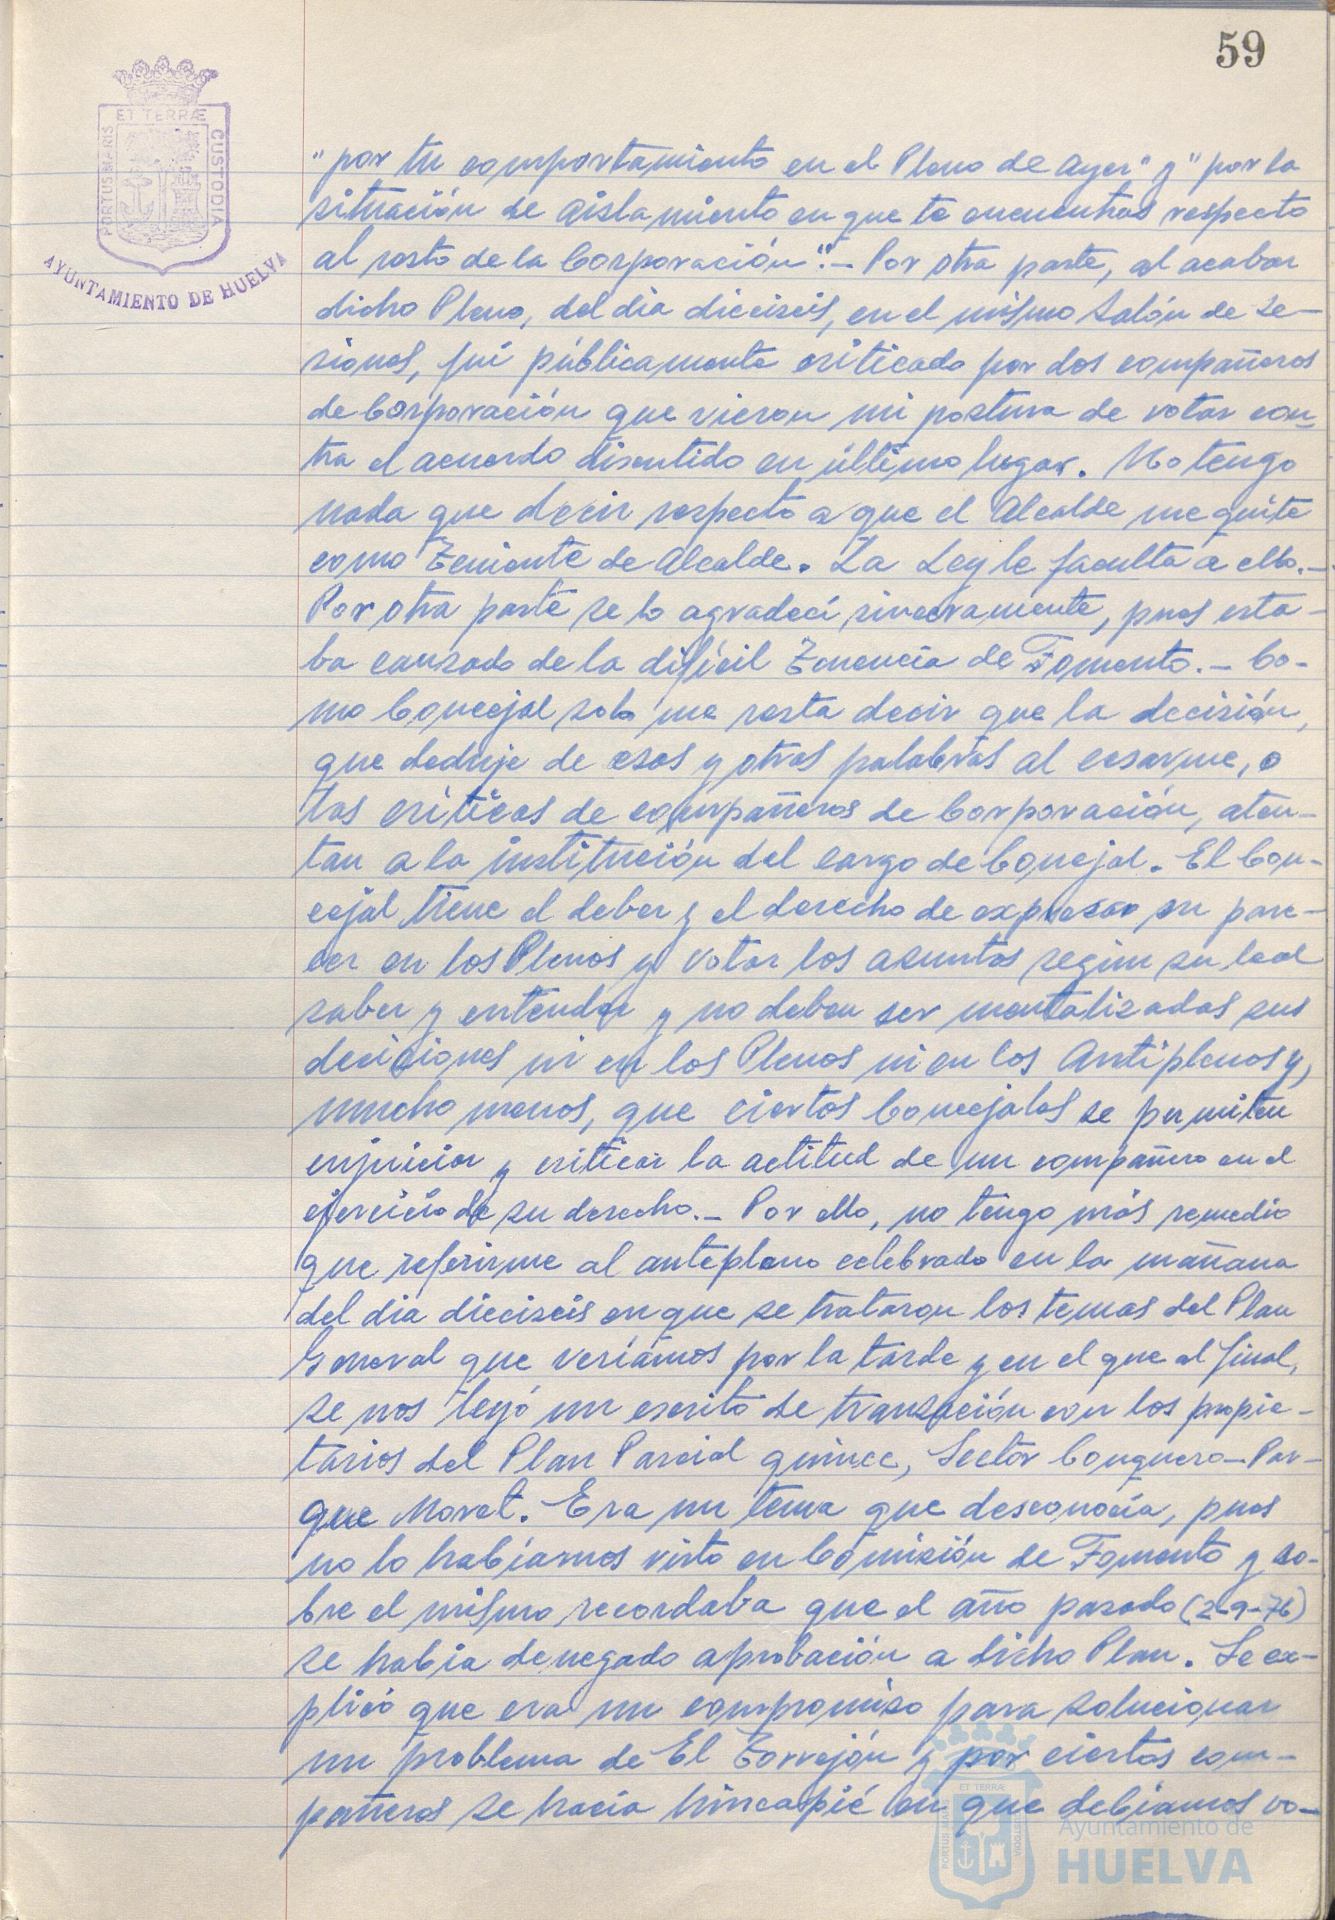 59
ET TERRÆ
PORTUS MARIS
CUSTODIA
AYUNTAMIENTO DE HUELVA
"por tu comportamiento en el Pleno de ayer" y "por la
situación de aislamiento en que te encuentras respecto
al resto de la Corporación".- Por otra parte, al acabar
dicho Pleno, del dia dieciseis, en el mismo Salón de Se-
siones, fuí públicamente criticado por dos compañeros
de Corporación que vieron mi postura de votar con-
tra el acuerdo discutido en último lugar. No tengo
nada que decir respecto a que el Alcalde me quite
como Teniente de Alcalde. La Ley le faculta a ello.-
Por otra parte se lo agradecí sinceramente, pues esta-
ba cansado de la difícil Tenencia de Fomento.- Co-
mo Concejal solo me resta decir que la decisión,
que deduje de esas y otras palabras al cesarme, o
las críticas de compañeros de Corporación, aten-
tan a la institución del cargo de Concejal. El Con-
cejal tiene el deber y el derecho de expresar su pare-
cer en los Plenos y votar los asuntos segun su leal
saber y entender y no deben ser mentalizadas sus
decisiones ni en los Plenos ni en los Antiplenos y,
mucho menos, que ciertos Concejales se permitan
enjuiciar y criticar la actitud de un compañero en el
ejercicio de su derecho.- Por ello, no tengo más remedio
que referirme al antepleno celebrado en la mañana
del dia dieciseis en que se trataron los temas del Plan
General que veríamos por la tarde y en el que al final,
se nos leyó un escrito de transación con los propie-
tarios del Plan Parcial quince, Sector Conquero-Par-
que Moret. Era un tema que desconocía, pues
no lo habíamos visto en Comisión de Fomento y so-
bre el mismo recordaba que el año pasado (2-9-76)
se habia denegado aprobación a dicho Plan. Se ex-
plicó que era un compromiso para solucionar
un problema de El Torrejón y por ciertos com-
pañeros se hacia hincapié en que debiamos vo-
ET TERRÆ
PORTUS MARIS
CUSTODIA
Ayuntamiento de
HUELVA